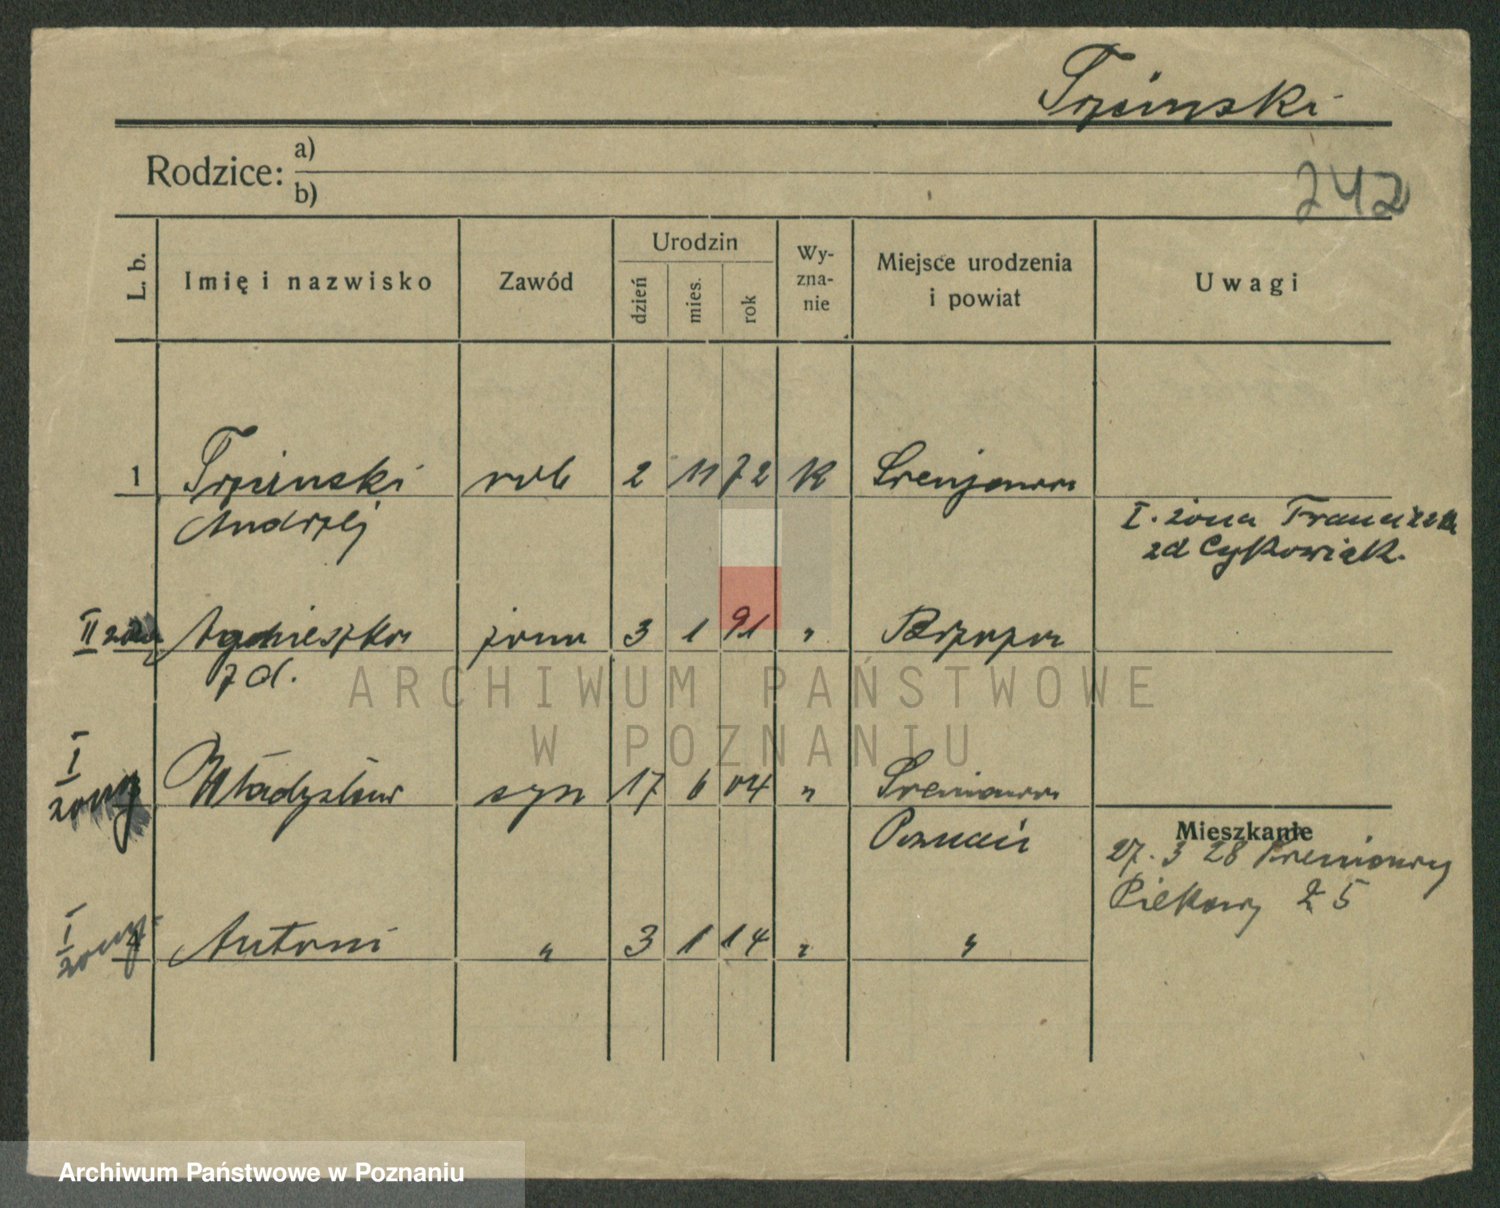 Trzciński
Rodzice: a)
b)
242
L. b. Imię i nazwisko Zawód Urodzin dzień mies. rok Wy-zna-nie Miejsce urodzenia i powiat Uwagi
1 Trzciński rob 2 11 72 K
Andrzej
I. żona Franciszka
zd Cykowiak.
II żona Agnieszka żona 3 1 91 "
zd.
ARCHIWUM PAŃSTWOWE
W POZNANIU
I żony Władysław syn 17 6 04 "
Poznań
Mieszkanie
27. 3 28
Piekary 25
I żony 4 Antoni " 3 1 14 " "
Archiwum Państwowe w Poznaniu